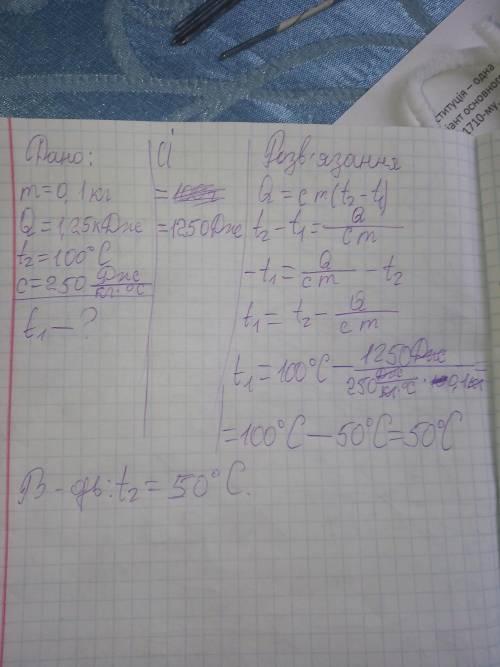 ституція – одна
іант основного
1710-му
Дано:
m=0,1кг
Q=1,25кДж
t₂=100°C
c=250 Дж/кг·°C
t₁ — ?
СІ
=
=1250Дж
Розв'язання
Q=cm(t₂-t₁)
t₂-t₁=Q/cm
-t₁=Q/cm -t₂
t₁=t₂-Q/cm
t₁=100°C-1250Дж/250Дж/кг·°C·0,1кг=
=100°C-50°C=50°C
В-дь: t₂=50°C.